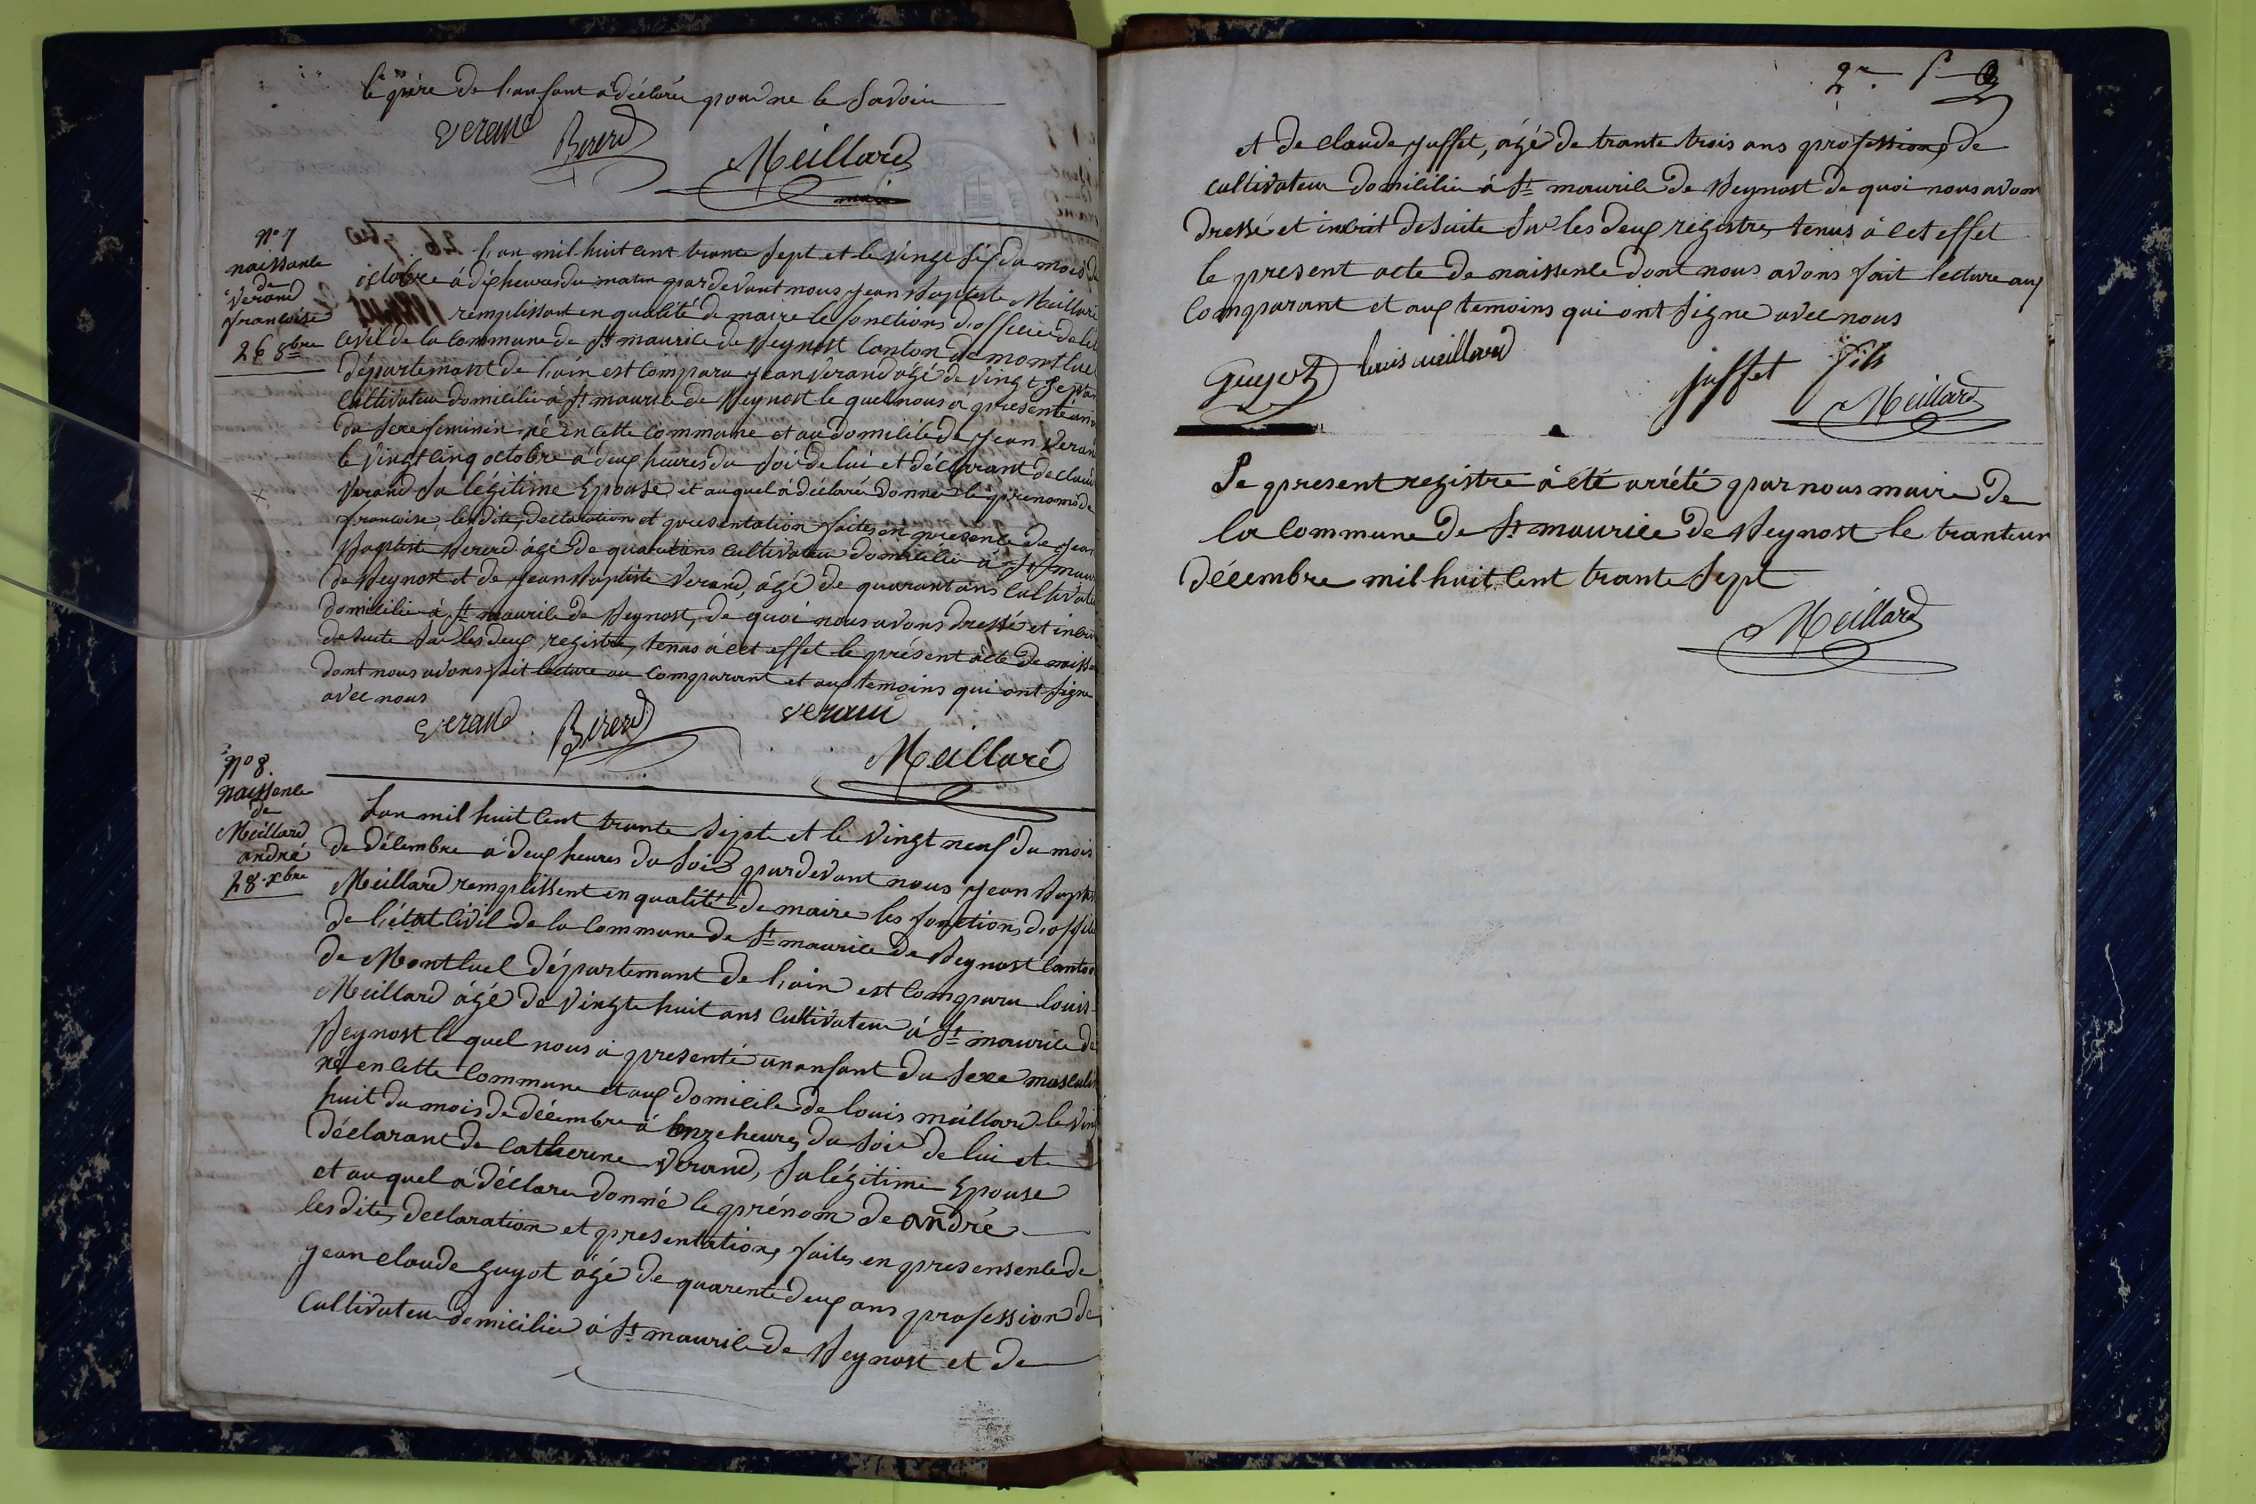 le père de l'anfant a déclaré pour ne le Savoir
verand Bererd Meillard
maire
N° 7
naissance
de
Verand
françoise
26 8bre
L'an mil huit cent trante Sept et le vingt Six du mois de
octobre à dix heures du matin pardevant nous jean Baptiste Meillard
remplissant en qualité de maire le fonctions d'officier de l'ét
Civil de la Commune de St maurice de Beynost Canton de montluel
département de l'ain est Comparu jean Verand agé de vingt Sept an
Cultivateur domicilié à St maurice de Beynost le quel nous a presenté un
du Sexe feminin né en cette Commune et au domicile de jean Veran
le Vingt cinq octobre à deux heures du Soir de lui et déclarant de Claud
Verand Sa légitime Epouse, et auquel a déclaré donner le prenoms de
francoise, les dite, declaration et presentation faites en presence de jean
Baptiste Bererd agé de quarantans Cultivateur domicilié à St mauri
de Beynost et de jean Baptiste Verand, agé de quarantans Cultivate
domicilié à St maurice de Beynost, de quoi nous avons dressé et inscri
de Suite Sur les deux registre, tenus à cet effet le présent acte de naissa
dont nous avons fait lecture au Comparant et aux temoins qui ont Signe
avec nous
verand Bererd verand
Meillard
N° 8.
naissance
de
Meillard
andré
28 xbre
L'an mil huit Cent trante Sept et le vingt neuf du mois
de décembre à deux heures du Soir pardevant nous jean Bapti
Meillard remplissent en qualité de maire les fonctions d'offici
de l'état Civil de la Commune de St maurice de Beynost Canton
de Montluel département de l'ain est Comparu louis
Meillard âgé de vingt huit ans Cultivateur à St maurice de
Beynost le quel nous à presenté un anfant du Sexe masculin
né en cette Commune et aux domicile de louis meillard le vin
huit du mois de décembre à onze heures du Soir de lui et
déclarant de Catherine Verand, Sa légitime Epouse
et auquel à déclaré donné le prénom de andré
les dite, declaration et presentation, faites en presensence de
jean claude guyot âgé de quarente deux ans profession de
Cultivateur domicilié à St maurice de Beynost et de
2e f
et de claude juffet, âgé de trante trois ans profession, de
cultivateur domicilié à St maurice de Beynost de quoi nous avon
dressé et inscrit de Suite Sur les deux registre, tenus à cet effet
le present acte de naissence dont nous avons fait lecture aux
Comparant et aux temoins qui ont Signe avec nous
Guyot louis meillard juffet fils
Meillard
Le present registre à été arrêté par nous maire de
la Commune de St maurice de Beynost le tranteun
décembre mil huit Cent trante Sept
Meillard